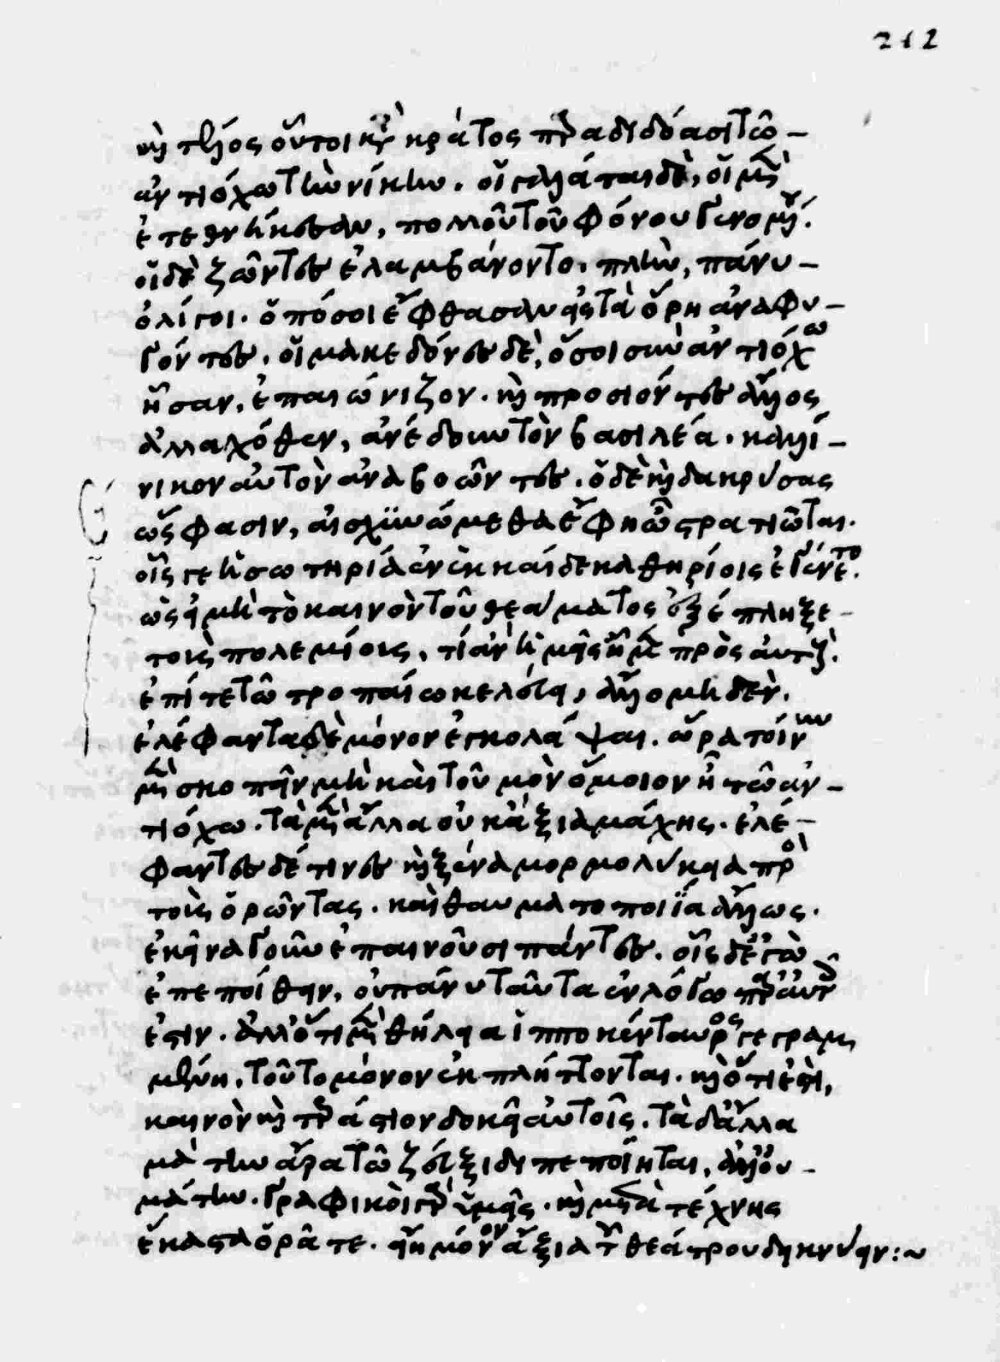 καὶ τέλος οὗτοι κατὰ κράτος παραδιδόασι τῶ
ἀντιόχω τὴν νίκην. οἱ γαλάται δὲ, οἱ μὲν
ἐτεθνήκεσαν, πολλοῦ τοῦ φόνου γενομένου.
οἱ δὲ ζῶντες ἐλαμβάνοντο. πλὴν, πάνυ
ὀλίγοι. ὁπόσοι ἔφθασαν εἰς τὰ ὄρη ἀναφυ-
γόντες. οἱ μακεδόνες δὲ, ὅσοι σὺν ἀντιόχω
ἦσαν, ἐπαιώνιζον. καὶ προσιόντες ἄλλος
ἀλλαχόθεν, ἀνέδουν τὸν βασιλέα. καλλί-
νικον αὐτὸν ἀναβοῶντες. ὁ δὲ καὶ δακρύσας
ὥς φασιν, αἰσχυνώμεθα ἔφη ὦ στρατιῶται.
οἷς γε ἡ σωτηρία ἐν ἑκκαίδεκα θηρίοις ἐγένετο.
ὡς εἰ μὴ τὸ καινὸν τοῦ θεάματος ἐξέπληξε
τοὺς πολεμίους, τί ἂν ἡμεῖς ἦμεν πρὸς αὐτούς.
ἐπί τε τῶ τροπαίω κελεύει, ἄλλο μηδὲν.
ἐλέφαντα δὲ μόνον ἐγκολάψαι. ὥρα τοίνυν
μὲν σκοπεῖν μὴ καὶ τοὐμὸν ὅμοιον ἦ τῶ ἀν-
τιόχω. τὰ μὲν ἄλλα οὐκ ἄξια μάχης. ἐλέ-
φαντες δέ τινες καὶ ξένα μορμολύκεια πρὸς
τοὺς ὁρῶντας. καὶ θαυματοποιΐα ἄλλως.
ἐκεῖνα γοῦν ἐπαινοῦσι πάντες. οἷς δὲ ἐγὼ
ἐπεποίθειν, οὐ πάνυ ταῦτα ἐν λόγω παρ' αὐτοῖς
ἐστιν. ἀλλ' ὅτι μὲν θήλεια ἱπποκένταυρος γεγραμ
μένη, τοῦτο μόνον ἐκπλήττονται. καὶ ὅτι ἐστὶ,
καινὸν καὶ τεράστιον δοκεῖ αὐτοῖς. τὰ δ' ἄλλα
μάτην ἄρα τῶ ζεύξιδι πεποίηται, ἀλλ' οὐ
μάτην. γραφικοὶ γὰρ ὑμεῖς. καὶ μετὰ τέχνης
ἕκαστα ὁρᾶτε. εἴη μόνον ἄξια τοῦ θεάτρου δεικνύειν:~